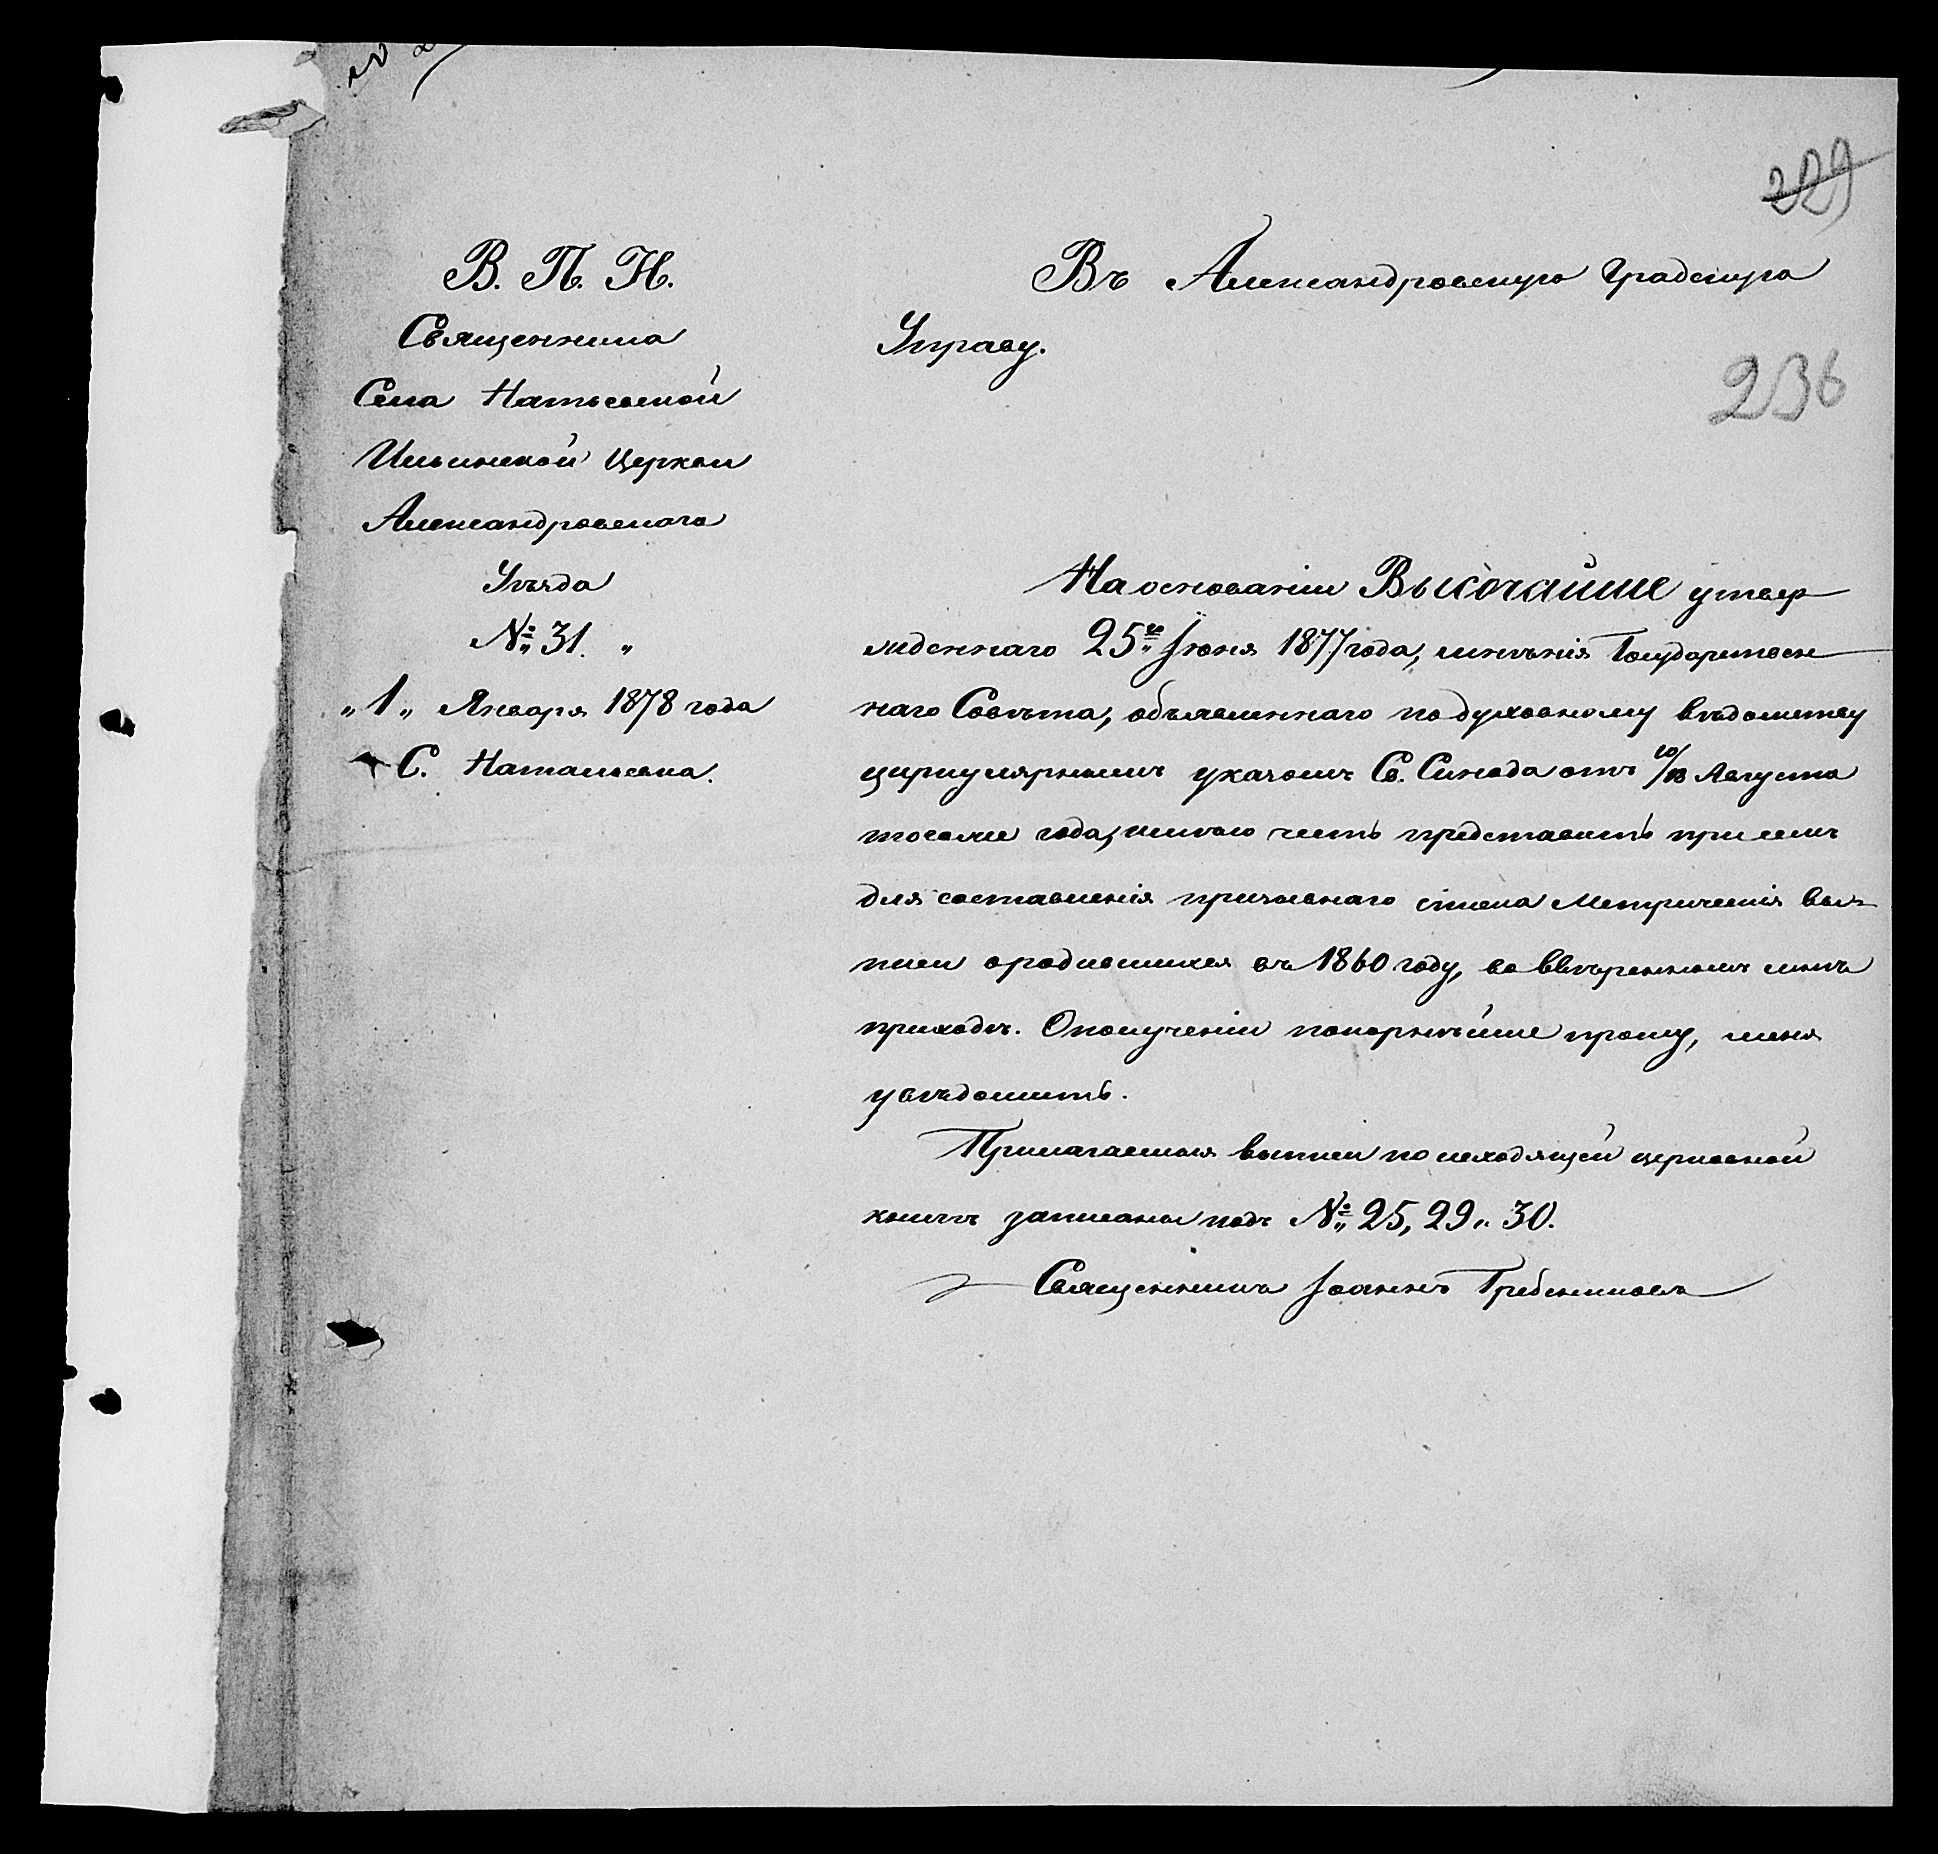 229
236
В. П. Н.
Священника
Села Натальевской
Ильинской Церкви
Александровскаго
Уѣзда
№ 31. „
„1„ Января 1878 года
С. Натальевка.
Въ Александровскую Градскую
Управу.
На основаніи Высочайше утвер
жденнаго 25го Іюня 1877 года, мнѣнія Государствен
наго Совѣта, объявленнаго по духовному вѣдомству
циркулярнымъ указомъ Св. Синода отъ 10/18 Августа
тогоже года, имѣю честь представить при семъ
для составленія призывнаго списка Метрическія вы-
писи о родившихся въ 1860 году, во ввѣренномъ мнѣ
приходѣ. О полученіи покорнѣйше прошу, меня
увѣдомить.
Прилагаемыя выписи по исходящей церковной
книгѣ записаны подъ № 25, 29 и 30.
Священникъ Іоаннъ Гребенниковъ